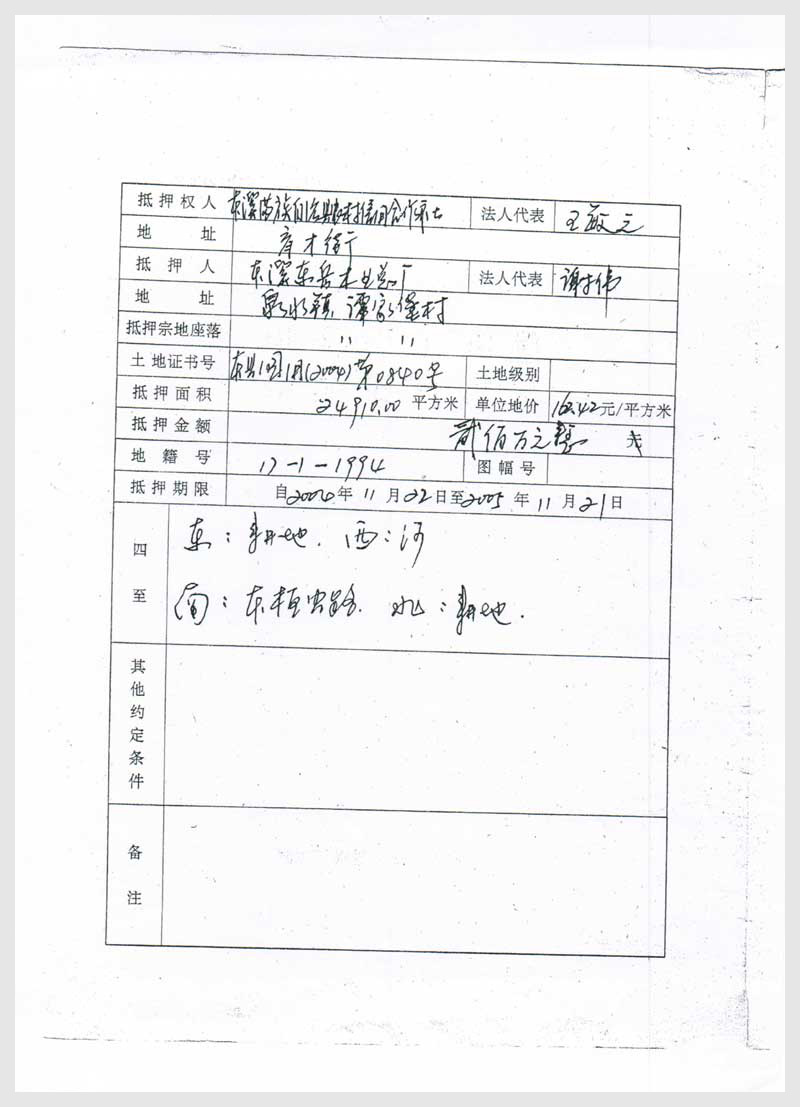 抵押权人 本溪满族自治县农村信用合作联社 法人代表 王敏之
地址 育才街
抵押人 本溪东岳木业总厂 法人代表 谢伟
地址 泉水镇 谭家堡村
抵押宗地座落 〃 〃
土地证书号 本县国用(2004)第0840号 土地级别
抵押面积 24910.00 平方米 单位地价 162.42元/平方米
抵押金额 贰佰万元整 元
地籍号 17-1-1994 图幅号
抵押期限 自2004年11月22日至2005年11月21日
四至 东:耕地. 西:河
南:本桓公路. 北:耕地.
其他约定条件
备注